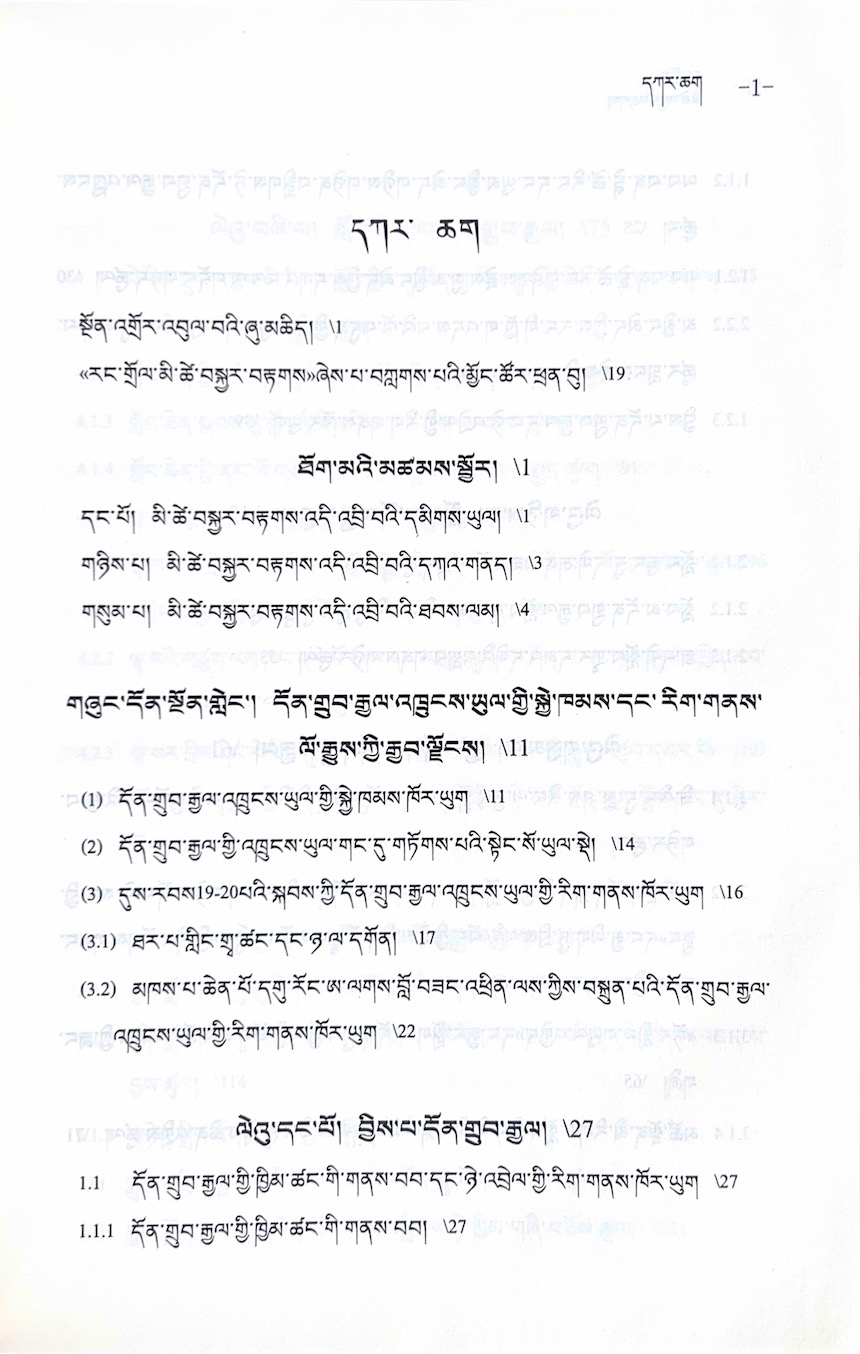 དཀར་ཆག -1-
དཀར་ ཆག
སྔོན་འགྲོར་འབུལ་བའི་ཞུ་མཆིད། \1
《རང་གྲོལ་མི་ཚེ་བསྐྱར་བརྟགས》ཞེས་པ་བཀླགས་པའི་མྱོང་ཚོར་ཕྲན་བུ། \19
ཐོག་མའི་མཚམས་སྦྱོར། \1
དང་པོ། མི་ཚེ་བསྐྱར་བརྟགས་འདི་འབྲི་བའི་དམིགས་ཡུལ། \1
གཉིས་པ། མི་ཚེ་བསྐྱར་བརྟགས་འདི་འབྲི་བའི་དཀའ་གནད། \3
གསུམ་པ། མི་ཚེ་བསྐྱར་བརྟགས་འདི་འབྲི་བའི་ཐབས་ལམ། \4
གཞུང་དོན་སྔོན་གླེང་། དོན་གྲུབ་རྒྱལ་འཁྲུངས་ཡུལ་གྱི་སྐྱེ་ཁམས་དང་རིག་གནས་
ལོ་རྒྱུས་ཀྱི་རྒྱབ་ལྗོངས། \11
(1) དོན་གྲུབ་རྒྱལ་འཁྲུངས་ཡུལ་གྱི་སྐྱེ་ཁམས་ཁོར་ཡུག \11
(2) དོན་གྲུབ་རྒྱལ་གྱི་འཁྲུངས་ཡུལ་གང་དུ་གཏོགས་པའི་སྟེང་སོ་ཡུལ་སྡེ། \14
(3) དུས་རབས19-20པའི་སྐབས་ཀྱི་དོན་གྲུབ་རྒྱལ་འཁྲུངས་ཡུལ་གྱི་རིག་གནས་ཁོར་ཡུག \16
(3.1) ཐར་པ་གླིང་གྲྭ་ཚང་དང་ཉ་ལ་དགོན། \17
(3.2) མཁས་པ་ཆེན་པོ་དགུ་རོང་ཨ་ལགས་བློ་བཟང་འཕྲིན་ལས་ཀྱིས་བསྐྲུན་པའི་དོན་གྲུབ་རྒྱལ་
འཁྲུངས་ཡུལ་གྱི་རིག་གནས་ཁོར་ཡུག \22
ལེའུ་དང་པོ། བྱིས་པ་དོན་གྲུབ་རྒྱལ། \27
1.1 དོན་གྲུབ་རྒྱལ་གྱི་ཁྱིམ་ཚང་གི་གནས་བབ་དང་ཉེ་འབྲེལ་གྱི་རིག་གནས་ཁོར་ཡུག \27
1.1.1 དོན་གྲུབ་རྒྱལ་གྱི་ཁྱིམ་ཚང་གི་གནས་བབ། \27